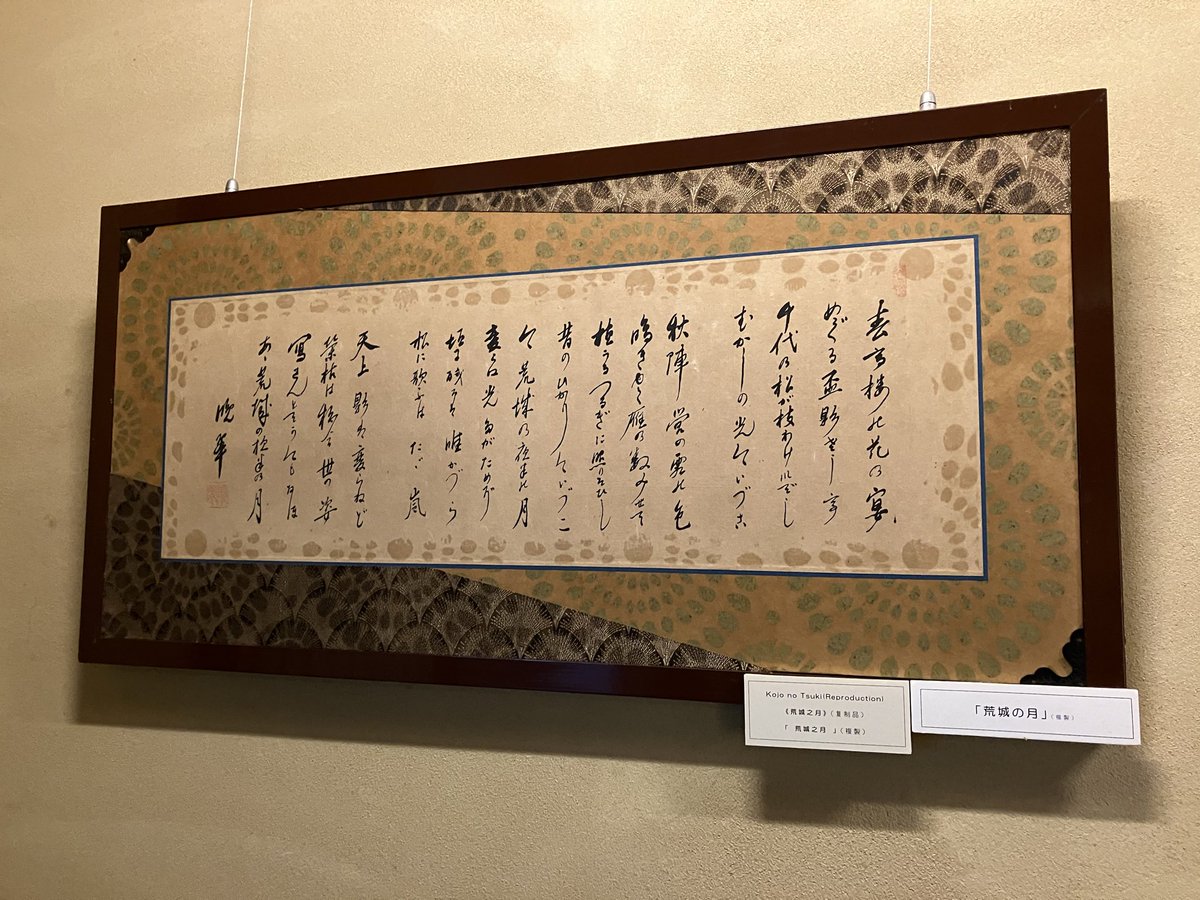 春高楼の花の宴
めぐる盃影さして
千代の松が枝わけいでし
むかしの光今いづこ
秋陣営の霜の色
鳴き行く雁の数みせて
植うるつるぎに照りそひし
昔のひかり今いづこ
今荒城の夜半の月
変らぬ光たがためぞ
垣に残るは唯かづら
松に歌ふはたゞ嵐
天上影は変らねど
榮枯は移る世の姿
寫さんとてか今もなほ
あゝ荒城の夜半の月
晩翠
Kojo no Tsuki(Reproduction)
《荒城之月》（复制品）
「 荒城之月 」（複製）
「荒城の月」（複製）